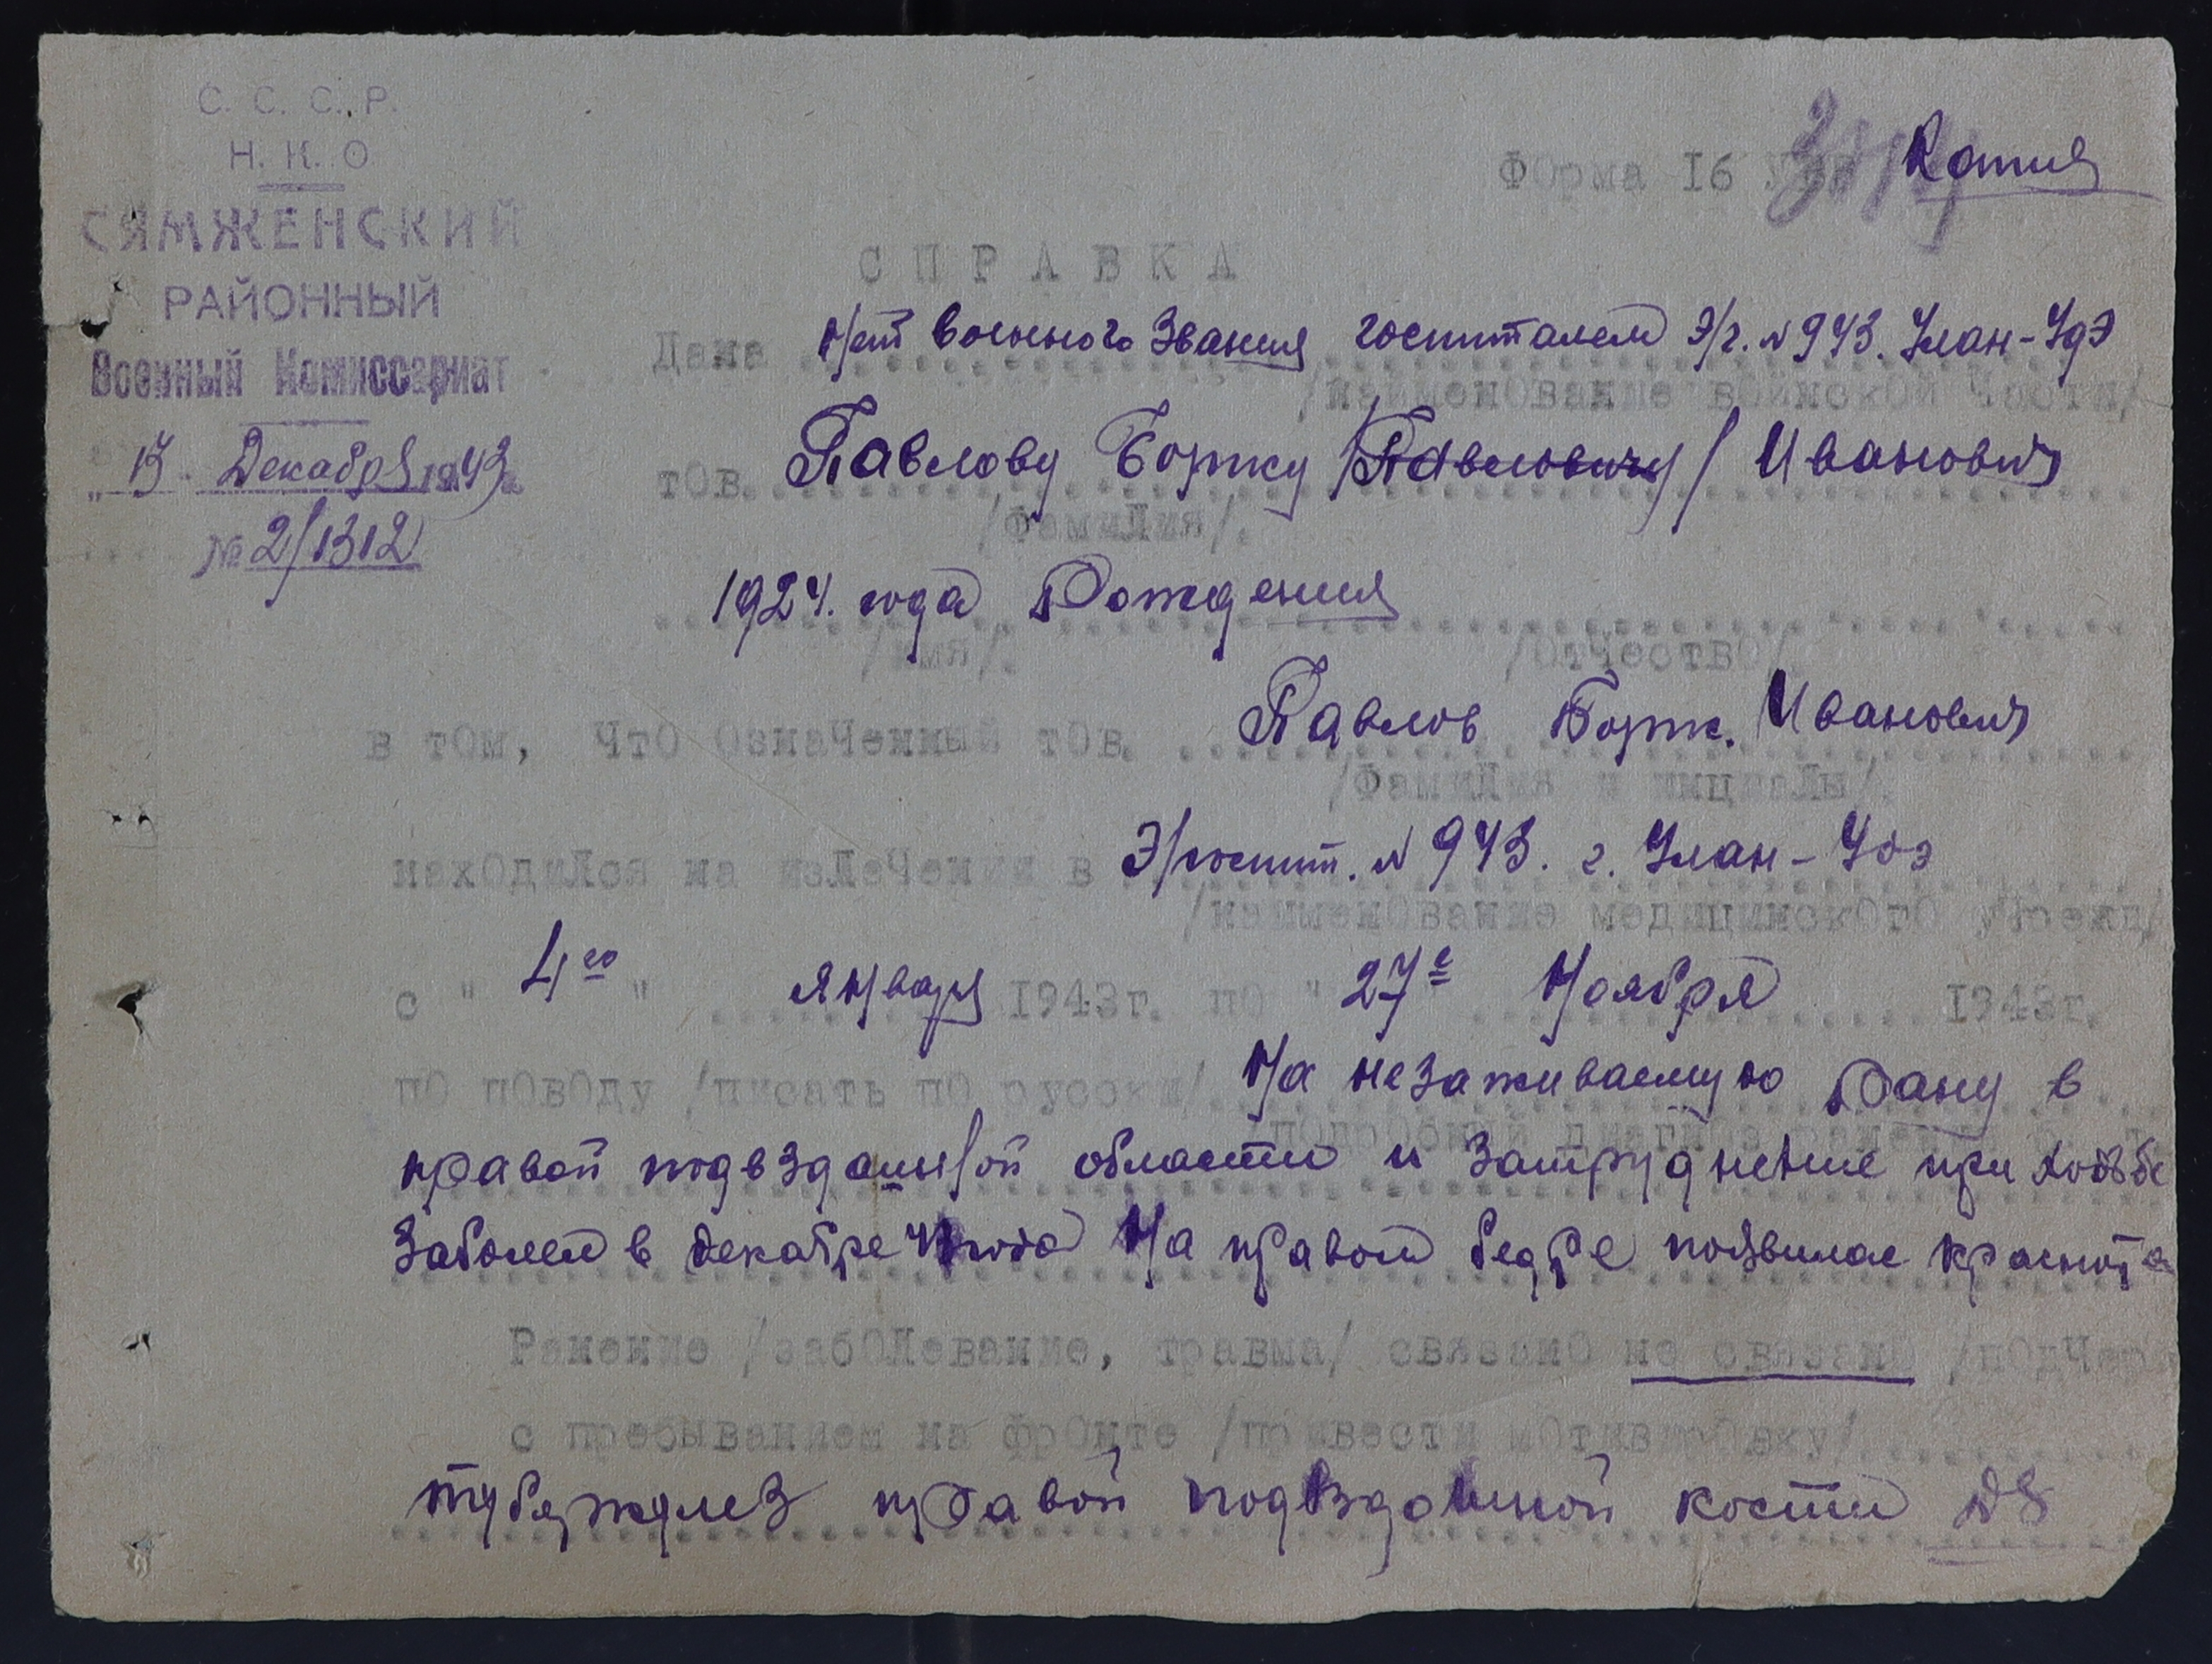 С. С. С. Р.
Н. К. О
СЯМЖЕНСКИЙ
РАЙОННЫЙ
Военный Комиссариат
Декабря 1943
№ 2/1312
Форма 16
Копия
СПРАВКА
Дана Нет военного Звания госпиталем Э/г. № 943. Улан-Удэ
/наименование войсковой части/
тов. Павлову Борису /Павловичу/ Иванович
/Фамилия/.
1924. года Рождения
/имя/. /Отчество/
в том, что означенный тов. Павлов Борис. Иванович
/Фамилия и инициалы/.
находился на излечении в Э/госпит. № 943. г. Улан-Удэ
/наименование медицинского учрежд/
с "4го" января 1943г. по "27е Ноября 1943г.
по поводу /писать по русски/ На незаживаемую Рану в
/подробный диагноз
правой подвздошной области и Затруднение при ходьбе
Заболел в декабре года На правом бедре появилас краснота
Ранение /заболевание, травма/ связано не связано /подчер
с пребыванием на фронте /привести мотивировку/
туберкулез правой подвздошной кости